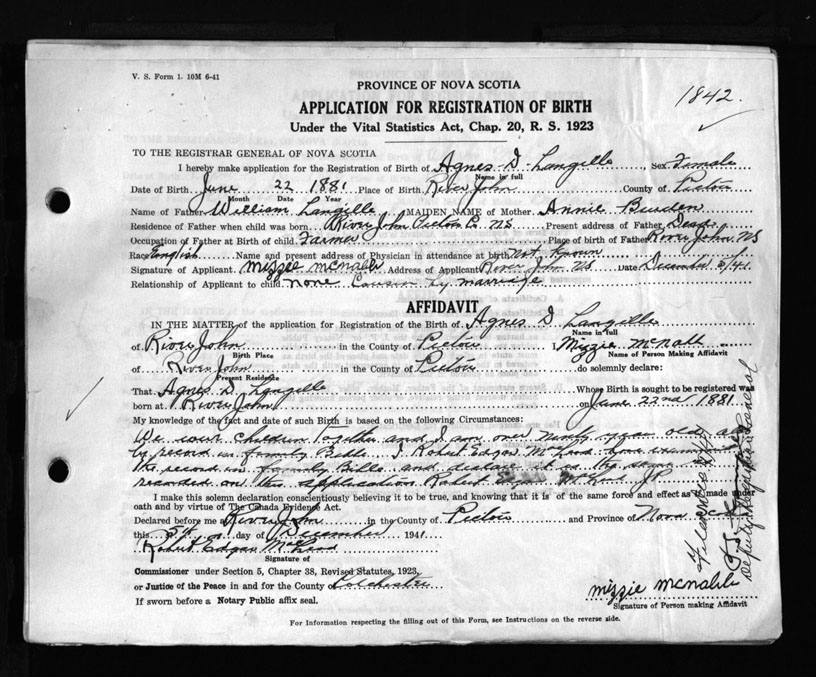 V. S. Form 1. 10M 6-41
PROVINCE OF NOVA SCOTIA
1842.
APPLICATION FOR REGISTRATION OF BIRTH
Under the Vital Statistics Act, Chap. 20, R. S. 1923
TO THE REGISTRAR GENERAL OF NOVA SCOTIA
I hereby make application for the Registration of Birth of Agnes D. Langille, Sex Female
Name in full
Date of Birth June 22 1881 Place of Birth River John County of Pictou
Month Date Year
Name of Father William Langille MAIDEN NAME of Mother Annie Burden
Residence of Father when child was born River John Pictou Co NS Present address of Father Dead
Occupation of Father at Birth of child Farmer Place of birth of Father River John NS
Race English Name and present address of Physician in attendance at birth Not Known
Signature of Applicant. Mizzie McNabb Address of Applicant River John NS Date December 5/41
Relationship of Applicant to child none Cousin by marriage
AFFIDAVIT
IN THE MATTER of the application for Registration of the Birth of Agnes D Langille
Name in full
of River John in the County of Pictou I, Mizzie McNabb
Birth Place Name of Person Making Affidavit
of River John in the County of Pictou do solemnly declare:
Present Residence
That Agnes D Langille Whose Birth is sought to be registered was
born at River John on June 22nd 1881
My knowledge of the fact and date of such Birth is based on the following Circumstances:
We were children together and I am over ninety year old as
by record in family Bible I Robert Edgar McLeod have examined
the record in family Bible and declare it is the same as
recorded on this application Robert Edgar McLeod J P
I make this solemn declaration conscientiously believing it to be true, and knowing that it is of the same force and effect as if made under
oath and by virtue of The Canada Evidence Act.
Declared before me at River John in the County of Pictou and Province of Nova Scotia
this 5th day of December 1941
Robert Edgar McLeod
Signature of
Commissioner under Section 5, Chapter 38, Revised Statutes, 1923,
or Justice of the Peace in and for the County of Colchester
If sworn before a Notary Public affix seal.
Mizzie McNabb
Signature of Person making Affidavit
For Information respecting the filling out of this Form, see Instructions on the reverse side.
Deputy Registrar General